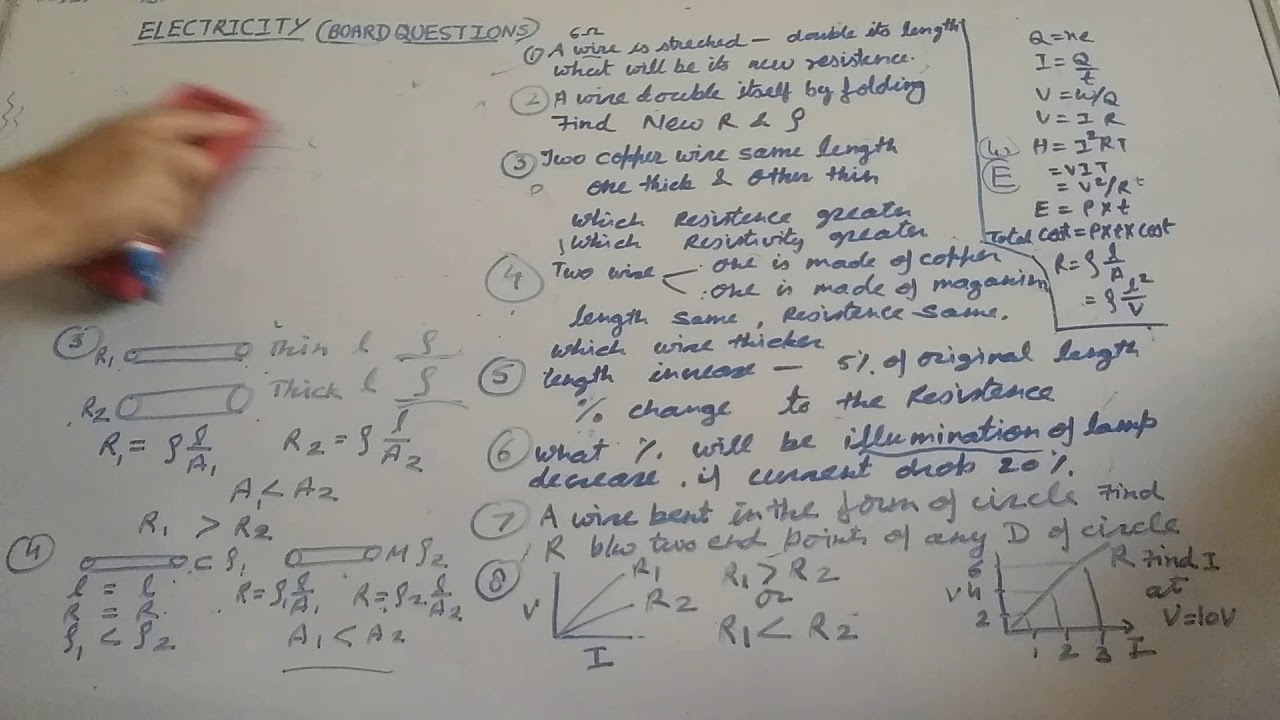 ELECTRICITY (BOARD QUESTIONS)
6Ω
① A wire is streched - double its length
what will be its new resistence.
② A wire double itself by folding
Find New R & ρ
③ Two copper wire same length
one thick & other thin
which Resistence greater
, which Resistivity greater
④ Two wire one is made of copper
one is made of maganim
length same, Resistence same.
which wire thicker
⑤ length increase - 5% of original length
% change to the Resistence
⑥ what % will be illumination of lamp
decrease. if current drop 20%.
⑦ A wire bent in the form of circle Find
R b/w two end points of any D of circle
⑧ V I R1 R2
R1 > R2
or
R1 < R2
V 6 4 2 1 2 3 I R
Find I
at
V=10V
Q = ne
I = Q/t
V = W/Q
V = I R
H = I²RT
E = VIT
= V²/R t
E = P X t
Total cost = PXtXcost
R = ρ l/A
= ρ l²/V
③ R1 Thin l ρ
R2 Thick l ρ
R1 = ρ l/A1 R2 = ρ l/A2
A1 < A2
R1 > R2
④ C ρ1 M ρ2
l = l
R = R
ρ1 < ρ2
R = ρ1 l/A1 R = ρ2 l/A2
A1 < A2